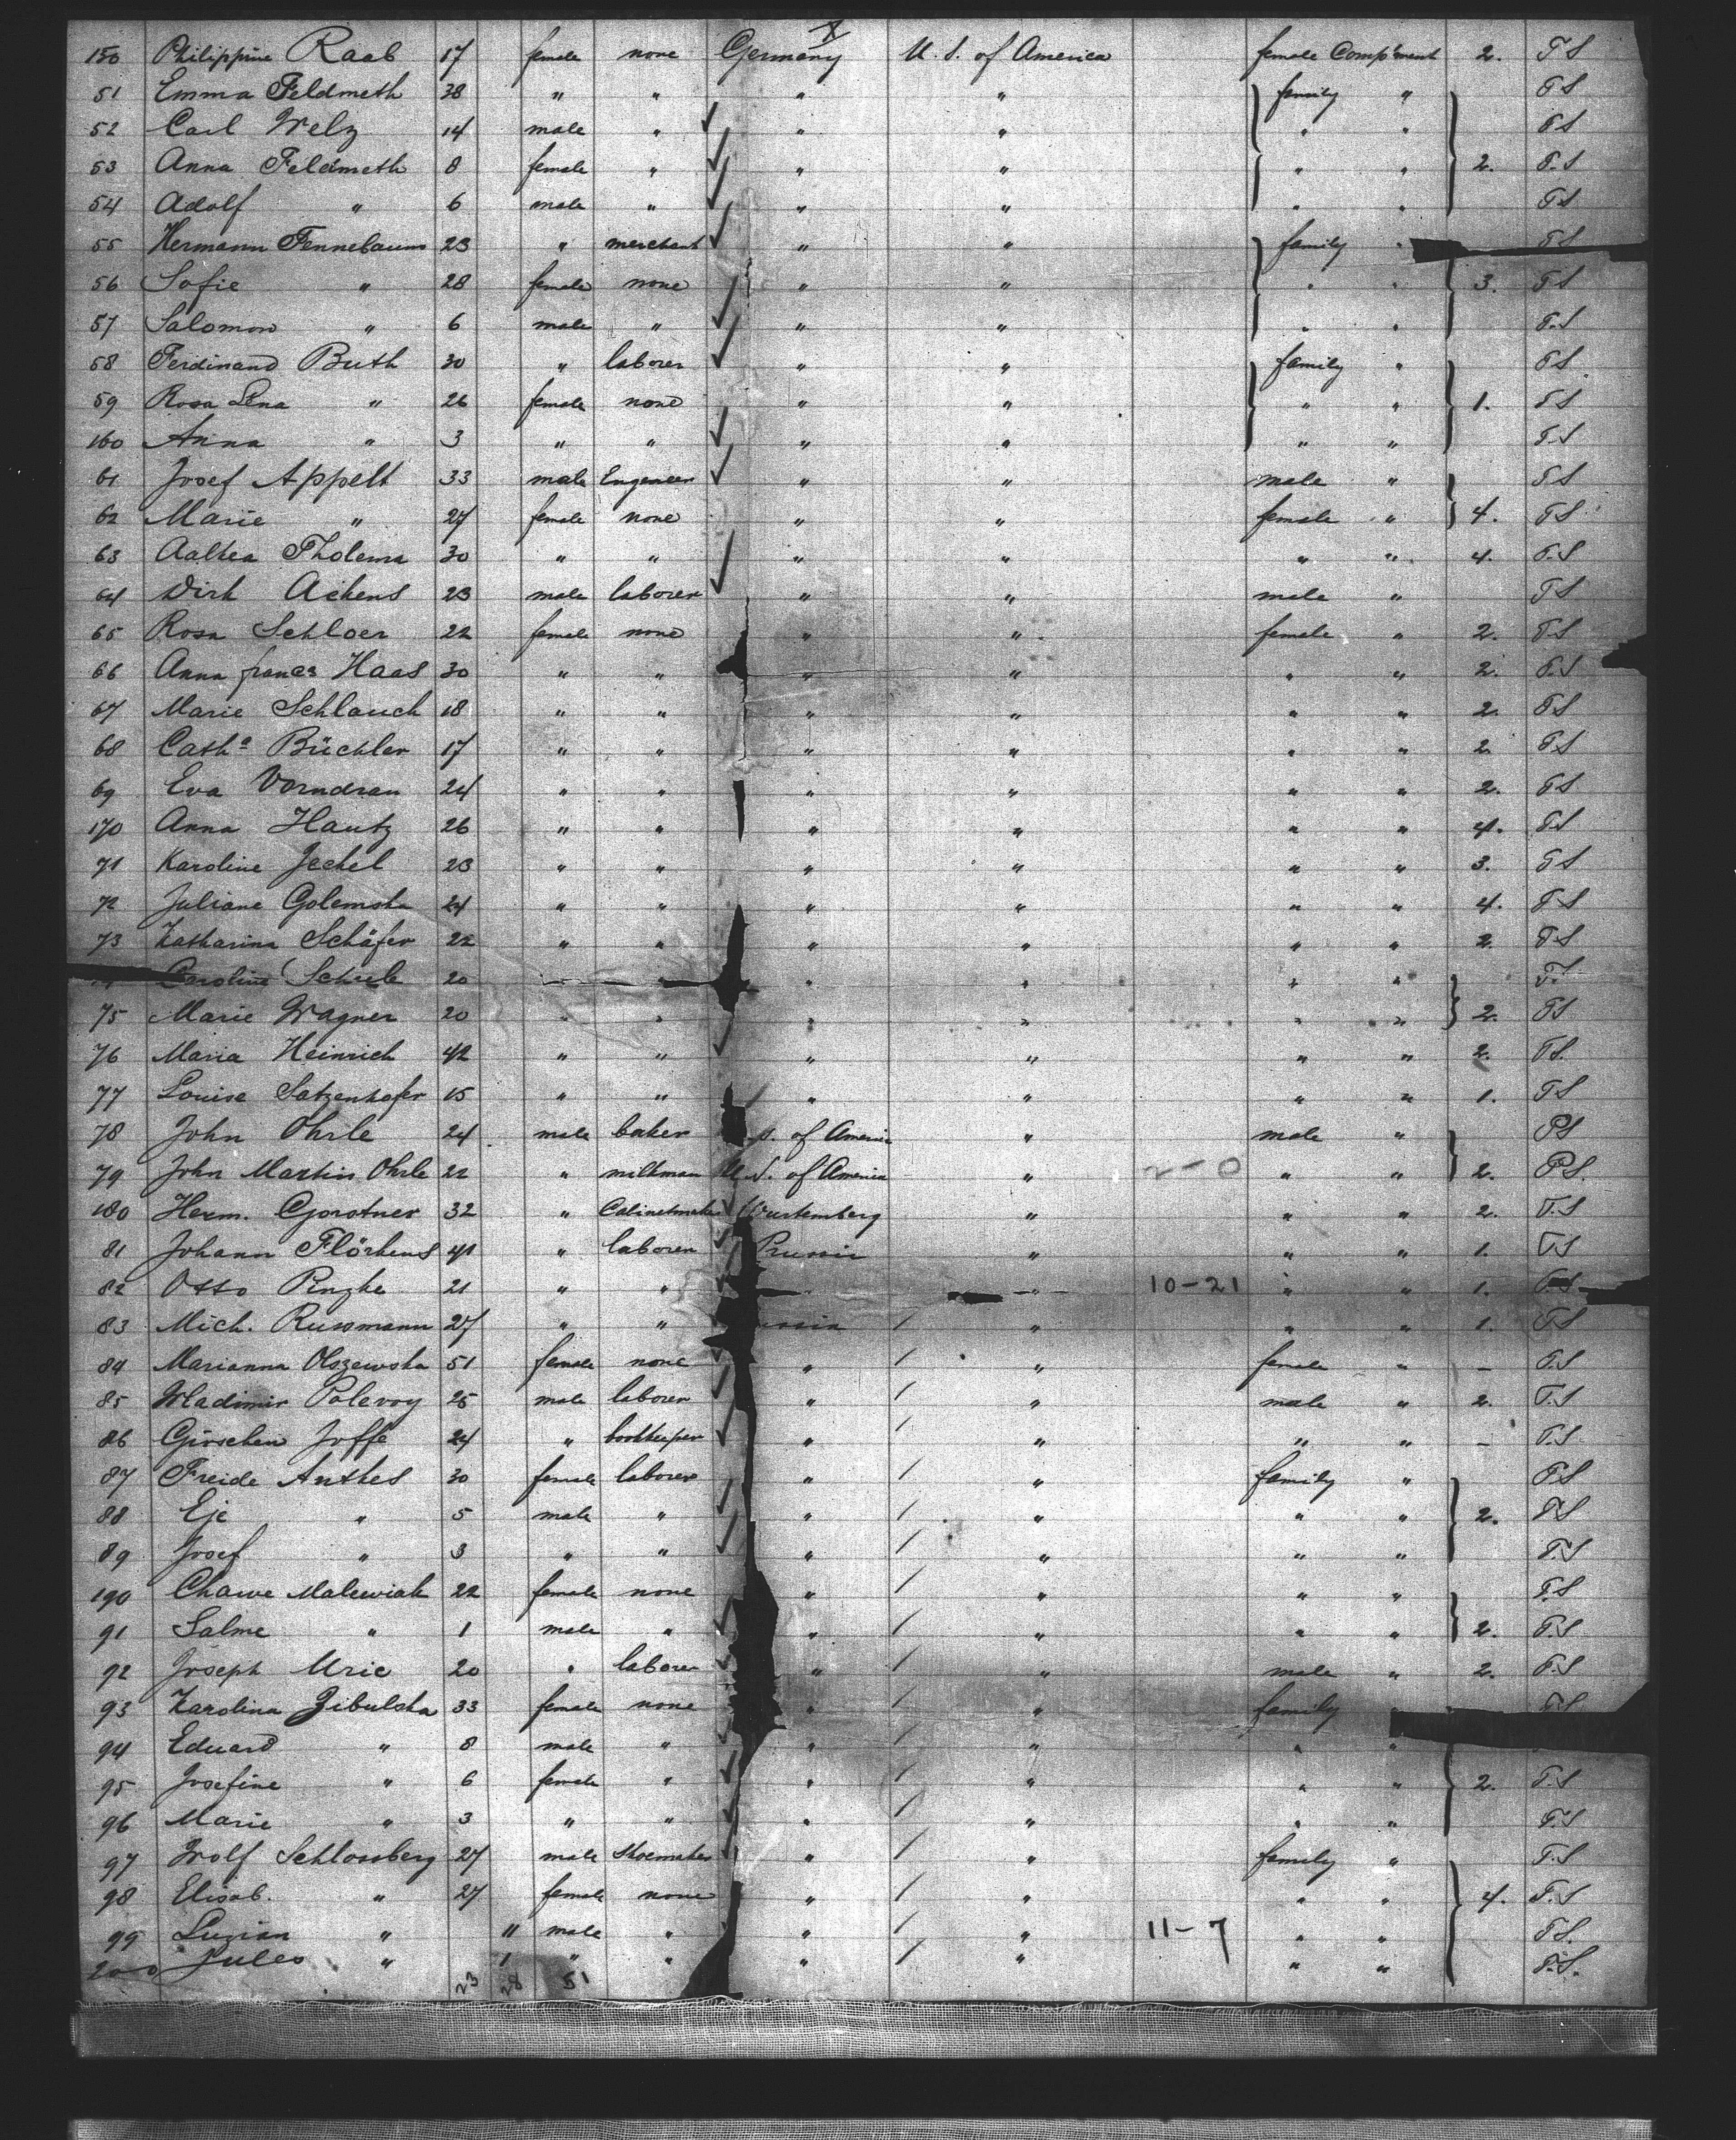 X
150 Philippine Raab 17 female none Germany U. S. of America female Comp'ment 2. T S
51 Emma Feldmeth 38 " " " " family " T S
52 Carl Welz 14 male " " " " " T S
53 Anna Feldmeth 8 female " " " " " 2. T. S
54 Adolf " 6 male " " " " " T S
55 Hermann Tennebaum 23 " merchant " " family " T S
56 Sofie " 28 female none " " " " 3. T S
57 Salomon " 6 male " " " " " T. S
58 Ferdinand Buth 30 " laborer " " family " T S
59 Rosa Lena " 26 female none " " " " 1. T S
160 Anna " 3 " " " " " " T. S
61 Josef Appelt 33 male Engeneer " " male " T S
62 Marie " 27 female none " " female " 4. T S
63 Aaltea Tholema 30 " " " " " " 4. T. S
64 Dirk Aikens 23 male laborer " " male " T S
65 Rosa Schloer 22 female none " " female " 2. T S
66 Anna Haas 30 " " " " " " 2. T. S
67 Marie Schlauch 18 " " " " " " 2. T S
68 Cath^a Büchler 17 " " " " " " 2 T S
69 Eva Vorndran 24 " " " " " " 2. T S
170 Anna Hautz 26 " " " " " " 4. T S
71 Karoline Jeckel 23 " " " " " " 3. T S
72 Juliane Golemska 24 " " " " " " 4. T S
73 Katharina Schäfer 22 " " " " " " 2 T S
Caroline 20 " " " " T.
75 Marie Wagner 20 " " " " " " 2. T S
76 Maria Heinrich 42 " " " " " " 2. T S.
77 Louise Satzenhofer 15 " " " " " " 1. T S
78 John Ohrle 24 male baker S. of America " male " P S
79 John Martin Ohrle 22 " milkman U. S. of America " 2-0 " " 2. P S.
180 Herm. Gorstner 32 " Cabinetmaker Wurtemberg " " " 2. T. S
81 Johann Flörkens 41 " laborer Prussia " " " 1. T S
82 Otto 21 " " " 10-21 " " 1. T. S
83 Mich. Russmann 27 " " ussia " " " 1. T S
84 Marianna Olszewska 51 female none " " female " - T. S
85 Wladimir Polevoy 25 male laborer " " male " 2. T. S
86 Girschen Joffe 24 " bookkeeper " " " " - T. S
87 Freide Anthes 30 female laborer " " family " T S
88 Eje " 5 male " " " " " 2. T S
89 Josef " 3 " " " " " " T. S
190 Chawe Malewiak 22 female none " " " " T. S
91 Salme " 1 male " " " " " 2. T. S
92 Joseph Uric 20 " laborer " " male " 2. T. S
93 Karolina Zibulska 33 female none " " family T S
94 Eduard " 8 male " " " " "
95 Josefine " 6 female " " " " " 2. T. S
96 Marie " 3 " " " " " " T. S
97 Wolf Schlossberg 27 male Shoemaker " " family " T. S
98 Elisab. " 27 female none " " " " 4. T. S
99 Luzian " 11 male " " " 11-7 " " T S.
200 Jules " 1 " " " " " " T. S.
23 28 51